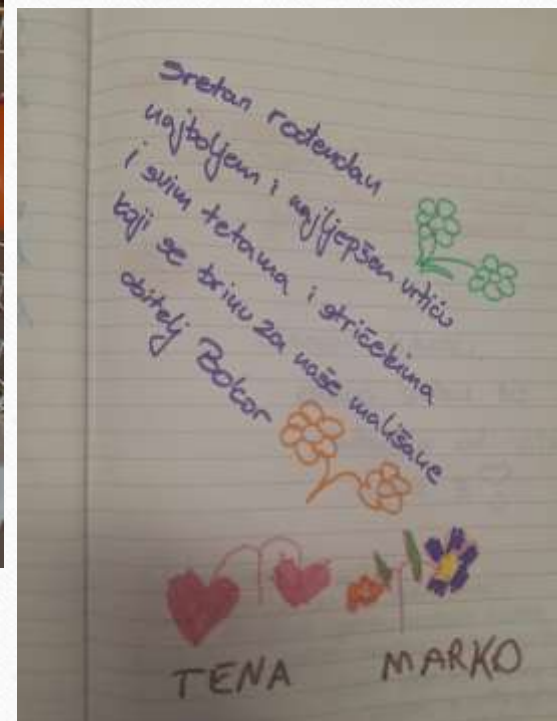 sretan rođendan
najboljem i najljepšem vrtiću
i svim tetama i stričekima
koji se brinu za naše mališane
obitelj Bokor
TENA
MARKO